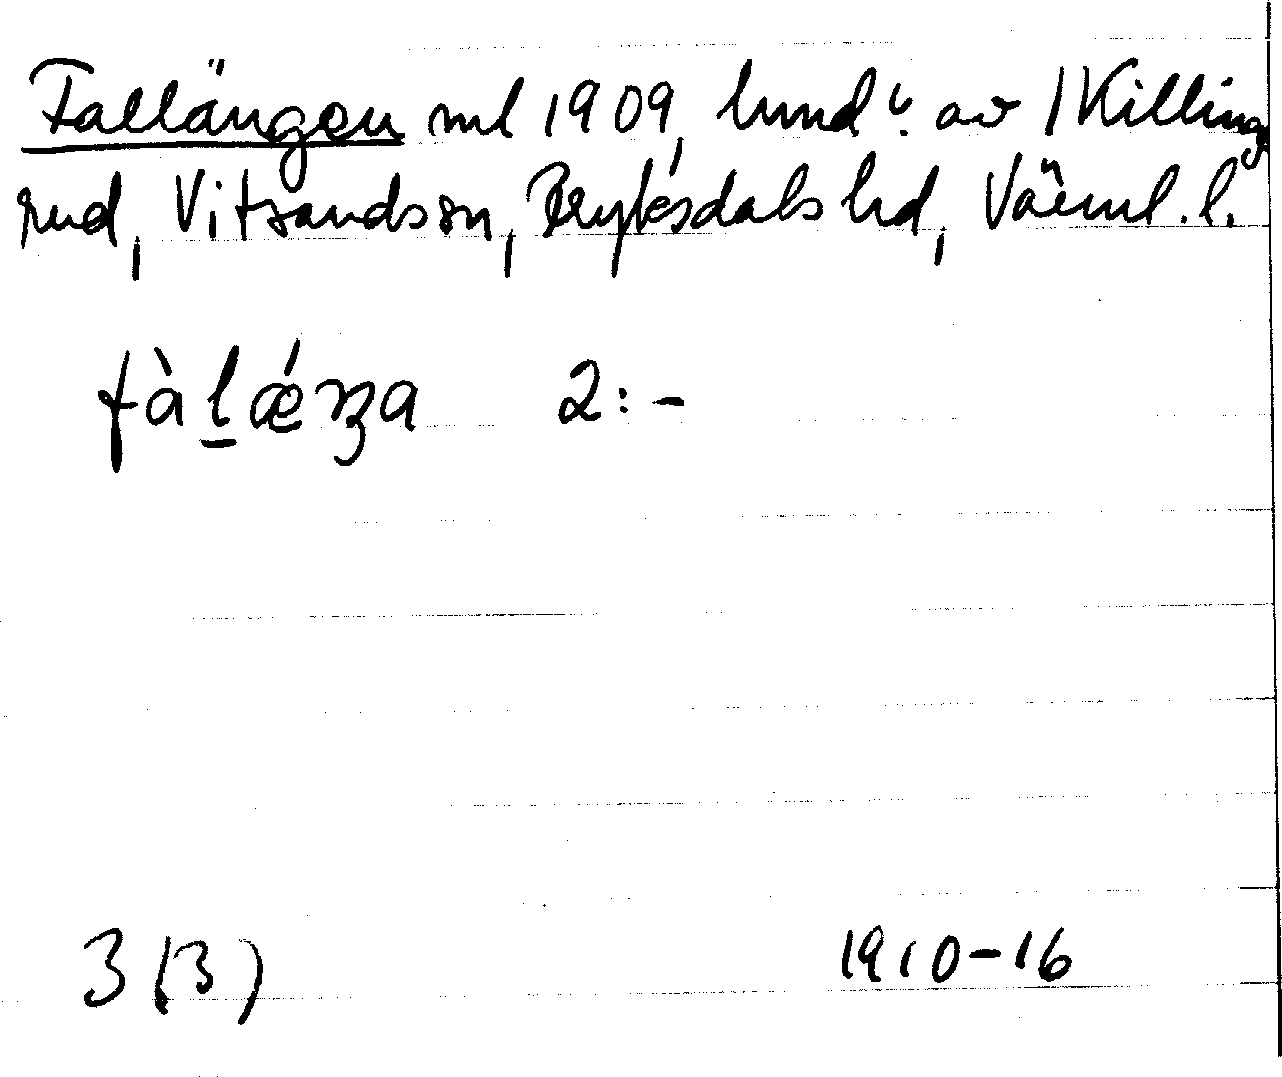 Fallängen ml 1909, lund u. av 1 Killings
rud, Vitsands sn, Fryksdals hd, Värml. l.
fàlǽŋa 2:-
3 (3) 1910-16